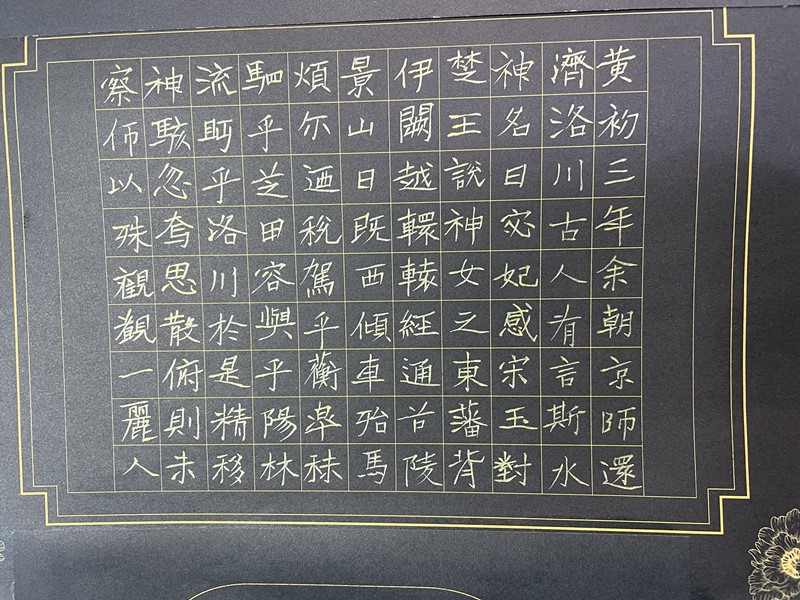 黄初三年余朝京師還
濟洛川古人有言斯水
神名曰宓妃感宋玉對
楚王說神女之東藩背
伊闕越轘轅經通谷陵
景山日既西傾車殆馬
煩尓迺稅駕乎蘅皋秣
駟乎芝田容與乎陽林
流眄乎洛川於是精移
神駭忽焉思散俯則未
察仰以殊觀觀一麗人